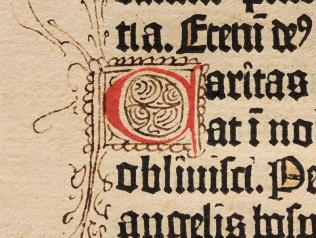 tia. Etenī deꝰ
Caritas
at ī no
oblivisci. Pe
angelis hosp